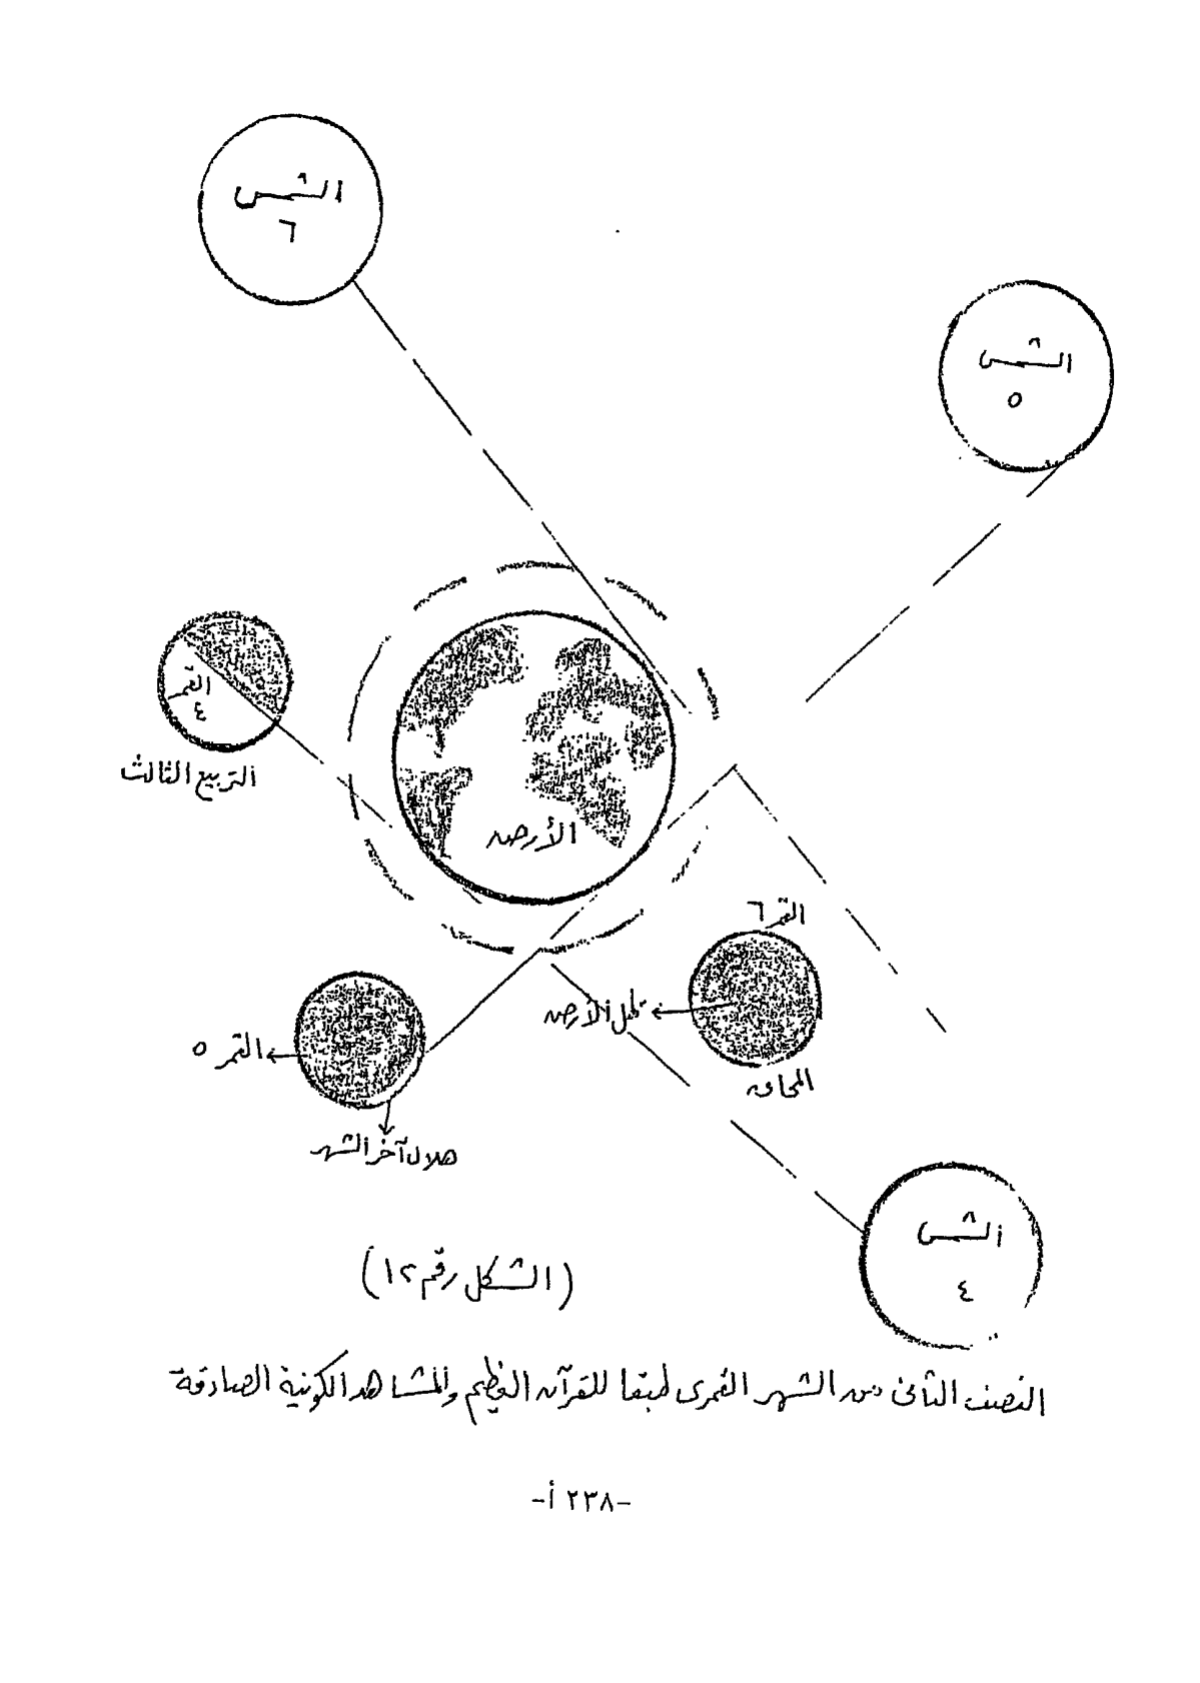 الشمس
٦
الشمس
٥
القمر
٤
التربيع الثالث
الأرض
القمر ٦
ظل الأرض
المحاق
القمر ٥
هلال آخر الشهر
الشمس
٤
(الشكل رقم ١٢)
النصف الثانى من الشهر القمرى طبقا للقرآن العظيم والمشاهد الكونية الصادقة
-٢٣٨ أ-